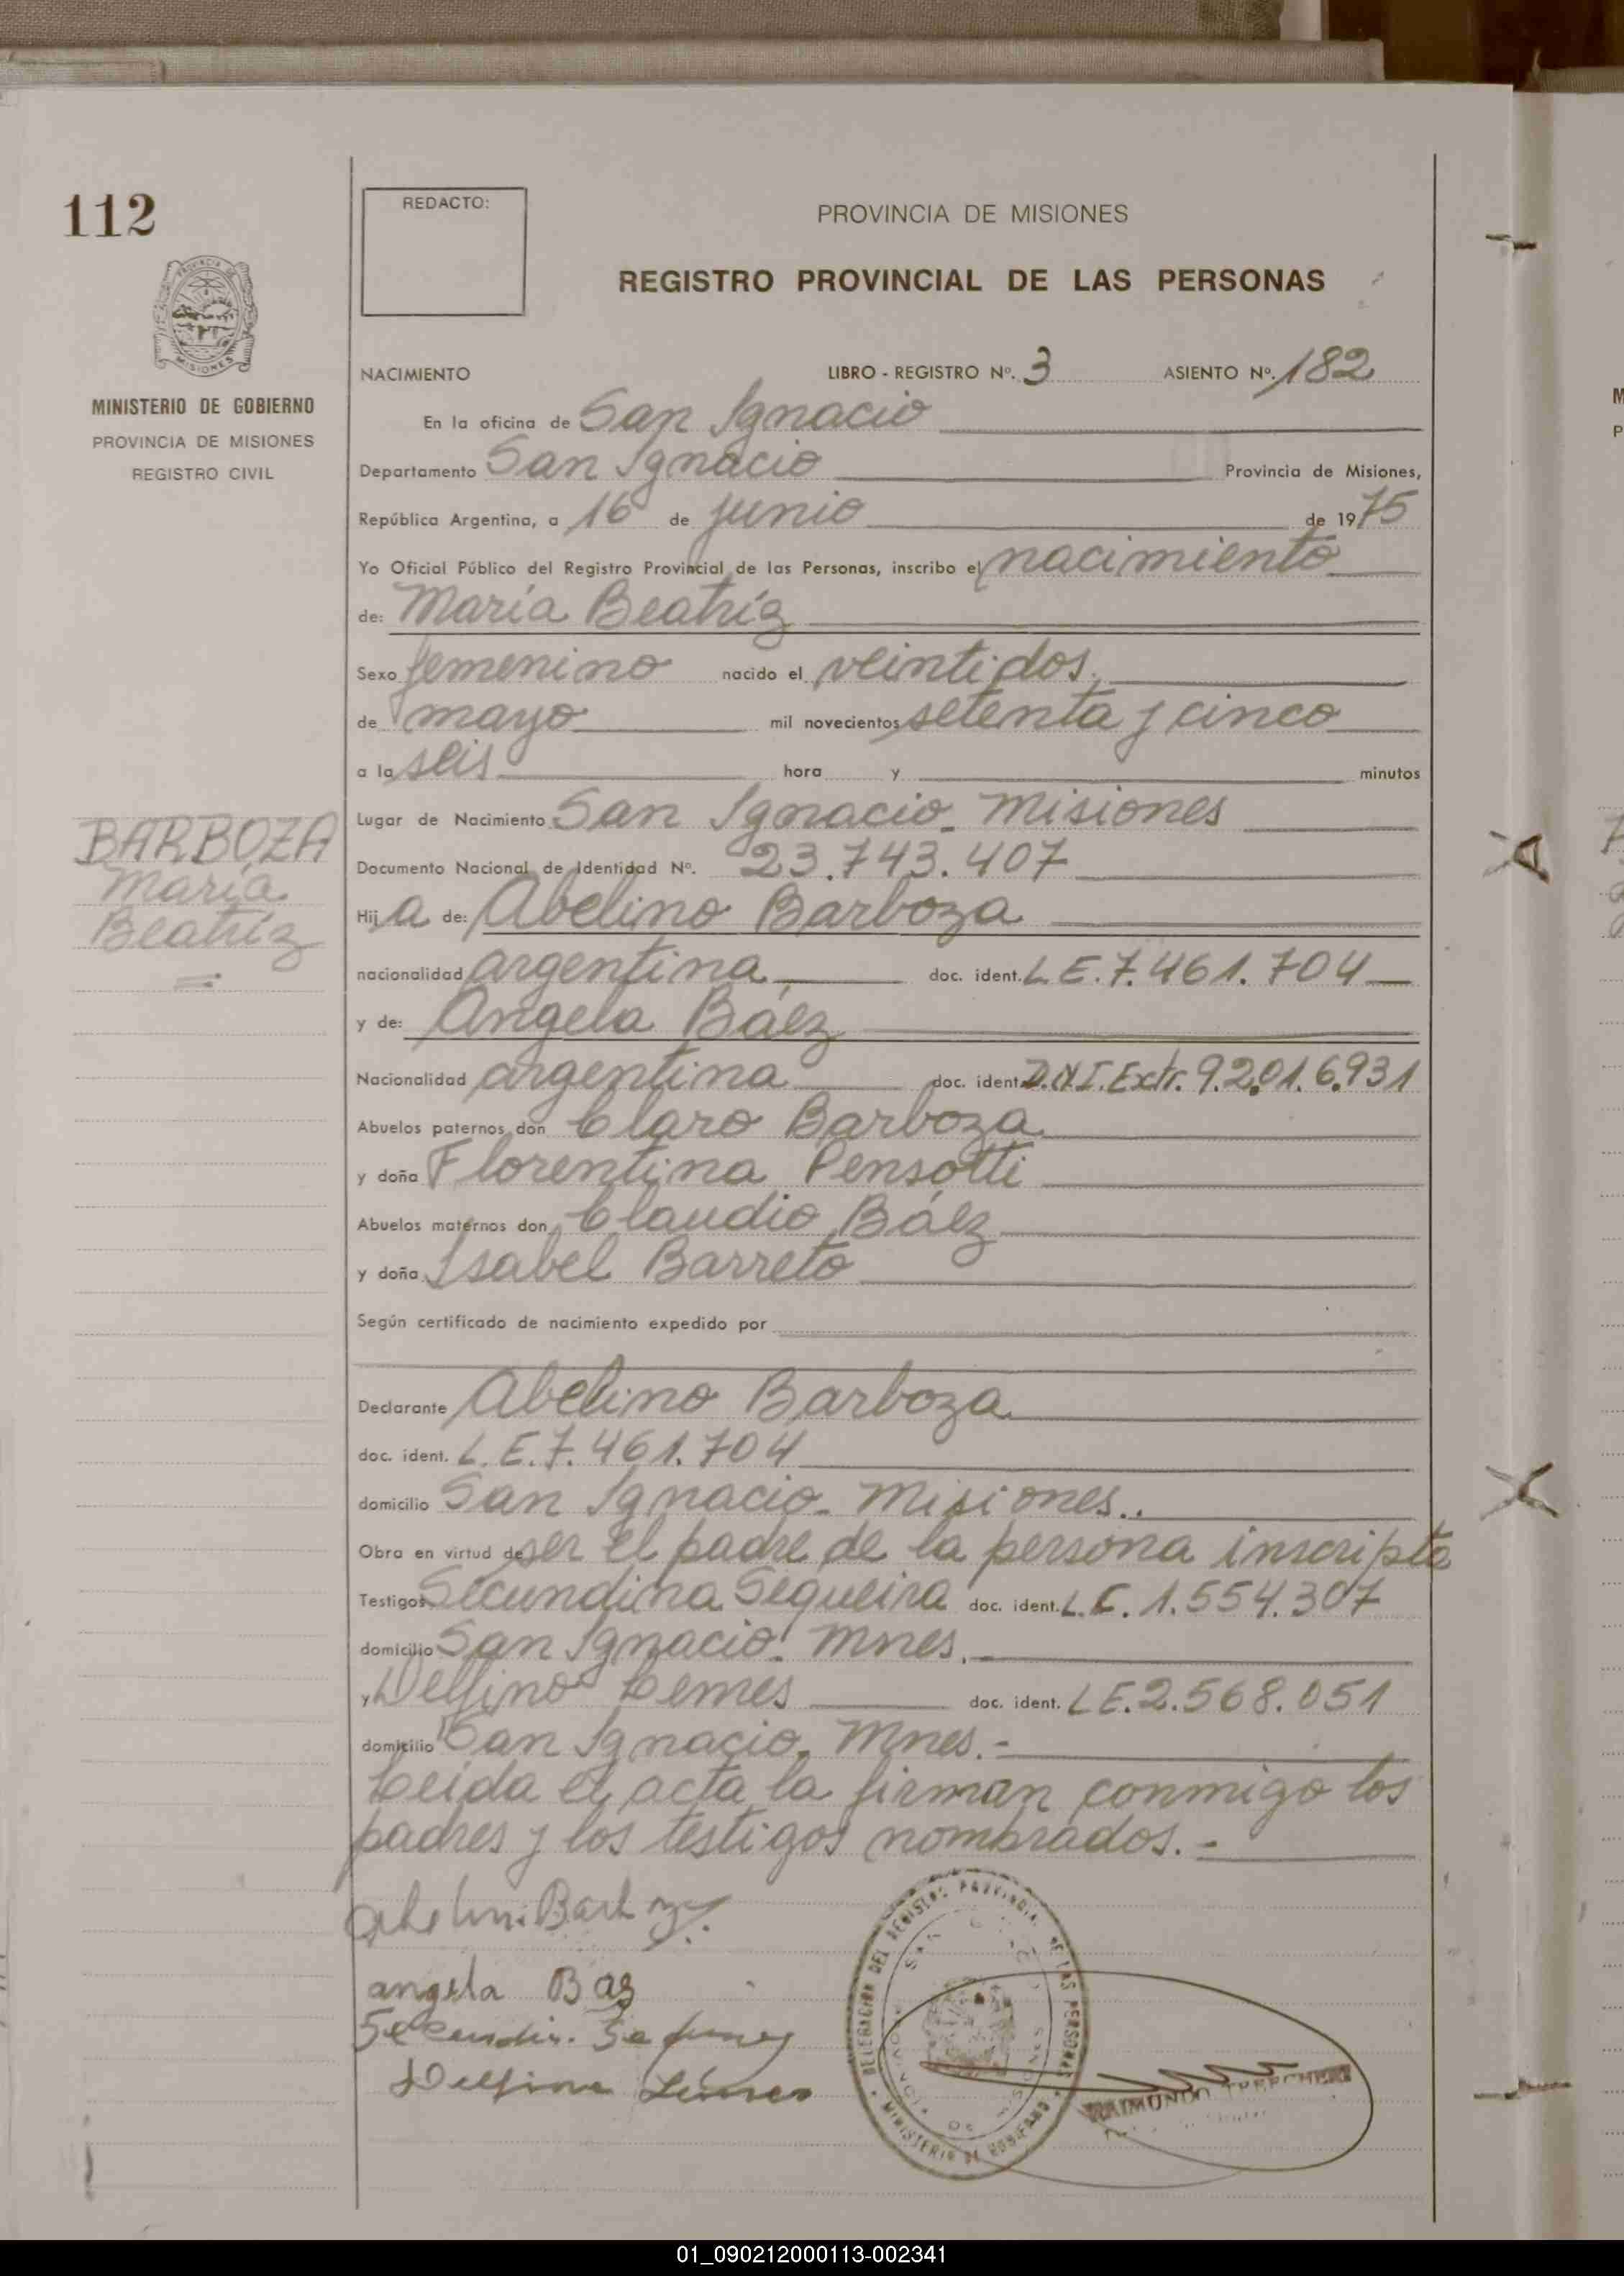 112
REDACTO:
PROVINCIA DE MISIONES
REGISTRO PROVINCIAL DE LAS PERSONAS
PROVINCIA DE
MISIONES
MINISTERIO DE GOBIERNO
PROVINCIA DE MISIONES
REGISTRO CIVIL
NACIMIENTO LIBRO - REGISTRO Nº. 3 ASIENTO Nº. 182
En la oficina de San Ignacio
Departamento San Ignacio Provincia de Misiones,
República Argentina, a 16 de junio de 1975
Yo Oficial Público del Registro Provincial de las Personas, inscribo el nacimiento
de: María Beatríz
Sexo femenino nacido el veintidos
de mayo mil novecientos setenta y cinco
a la seis hora y minutos
Lugar de Nacimiento San Ignacio - Misiones
BARBOZA
María
Beatríz
Documento Nacional de Identidad Nº. 23.743.407
Hija de: Abelino Barboza
nacionalidad argentina doc. ident. L.E.7.461.704
y de: Angela Báez
Nacionalidad argentina doc. ident. D.N.I.Extr. 9.2.01.6.931
Abuelos paternos don Claro Barboza
y doña Florentina Pensotti
Abuelos maternos don Claudio Báez
y doña Isabel Barreto
Según certificado de nacimiento expedido por
Declarante Abelino Barboza
doc. ident. L.E.7.461.704
domicilio San Ignacio - Misiones..
Obra en virtud de ser el padre de la persona inscripta
Testigos Secundina Sequeira doc. ident. L.C. 1.554.307
domicilio San Ignacio. Mnes.-
y Delfino Lemes doc. ident. L.E.2.568.051
domicilio San Ignacio. Mnes.-
Leída el acta la firman conmigo los
padres y los testigos nombrados.-
angela Baz
Delfino Lemes
DELEGACION DEL REGISTRO PROVINCIAL DE LAS PERSONAS
MINISTERIO DE GOBIERNO
RAIMUNDO
01_090212000113-002341